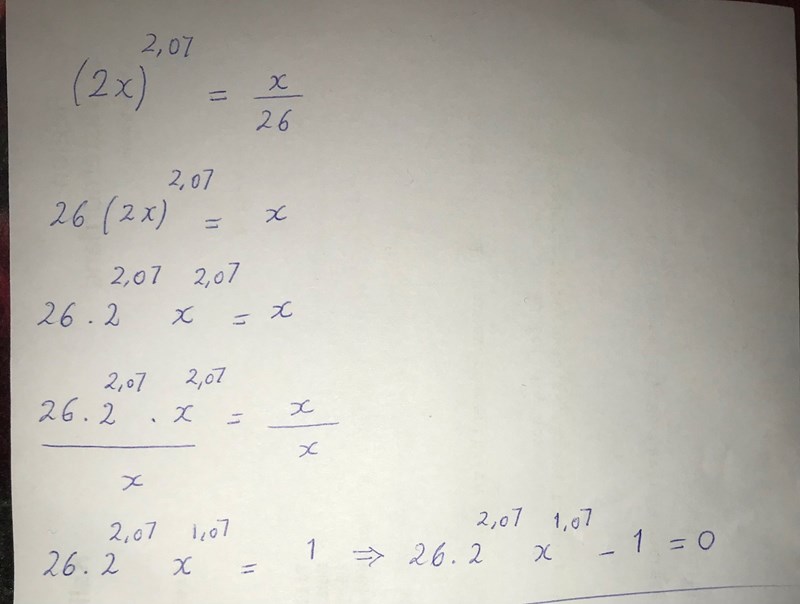 (2x)^2,07 = x/26
26 (2x)^2,07 = x
26 . 2^2,07 x^2,07 = x
26 . 2^2,07 . x^2,07 / x = x/x
26 . 2^2,07 x^1,07 = 1 ⇒ 26 . 2^2,07 x^1,07 - 1 = 0